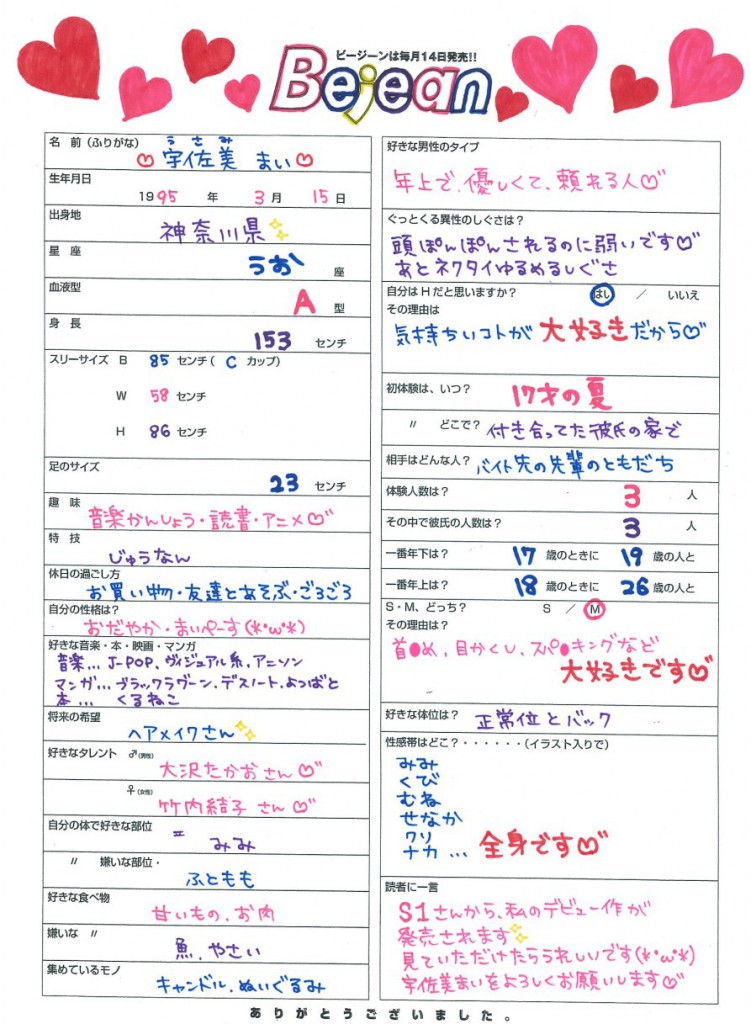 ビージーンは毎月14日発売!!
Bejean
名 前(ふりがな)
うさみ
宇佐美 まい
生年月日
1995 年 3月 15日
出身地
神奈川県
星 座
うお 座
血液型
A 型
身 長
153 センチ
スリーサイズ B 85 センチ( C カップ)
W 58 センチ
H 86 センチ
足のサイズ
23 センチ
趣 味
音楽かんしょう・読書・アニメ
特 技
じゅうなん
休日の過ごし方
お買い物・友達とあそぶ・ごろごろ
自分の性格は?
おだやか・まいぺーす(*'ω'*)
好きな音楽・本・映画・マンガ
音楽... J-POP、ヴィジュアル系、アニソン
マンガ... ブラックラグーン、デスノート、よつばと
本... くるねこ
将来の希望
ヘアメイクさん
好きなタレント ♂(男性)
大沢たかおさん
♀(女性)
竹内結子さん
自分の体で好きな部位
みみ
〃 嫌いな部位・
ふともも
好きな食べ物
甘いもの、お肉
嫌いな 〃
魚、やさい
集めているモノ
キャンドル、ぬいぐるみ
好きな男性のタイプ
年上で、優しくて、頼れる人
ぐっとくる異性のしぐさは?
頭ぽんぽんされるのに弱いです
あとネクタイゆるめるしぐさ
自分はHだと思いますか? はい / いいえ
その理由は
気持ちいコトが大好きだから
S・M、どっち? S / M
その理由は?
首●め、目かくし、スパ●キングなど
大好きです
好きな体位は? 正常位とバック
性感帯はどこ?・・・・・・(イラスト入りで)
みみ
くび
むね
せなか
ワリ
ナカ... 全身です
読者に一言
S1さんから、私のデビュー作が
発売されます
見ていただけたらうれしいです(*'ω'*)
宇佐美まいをよろしくお願いします
ありがとうございました。